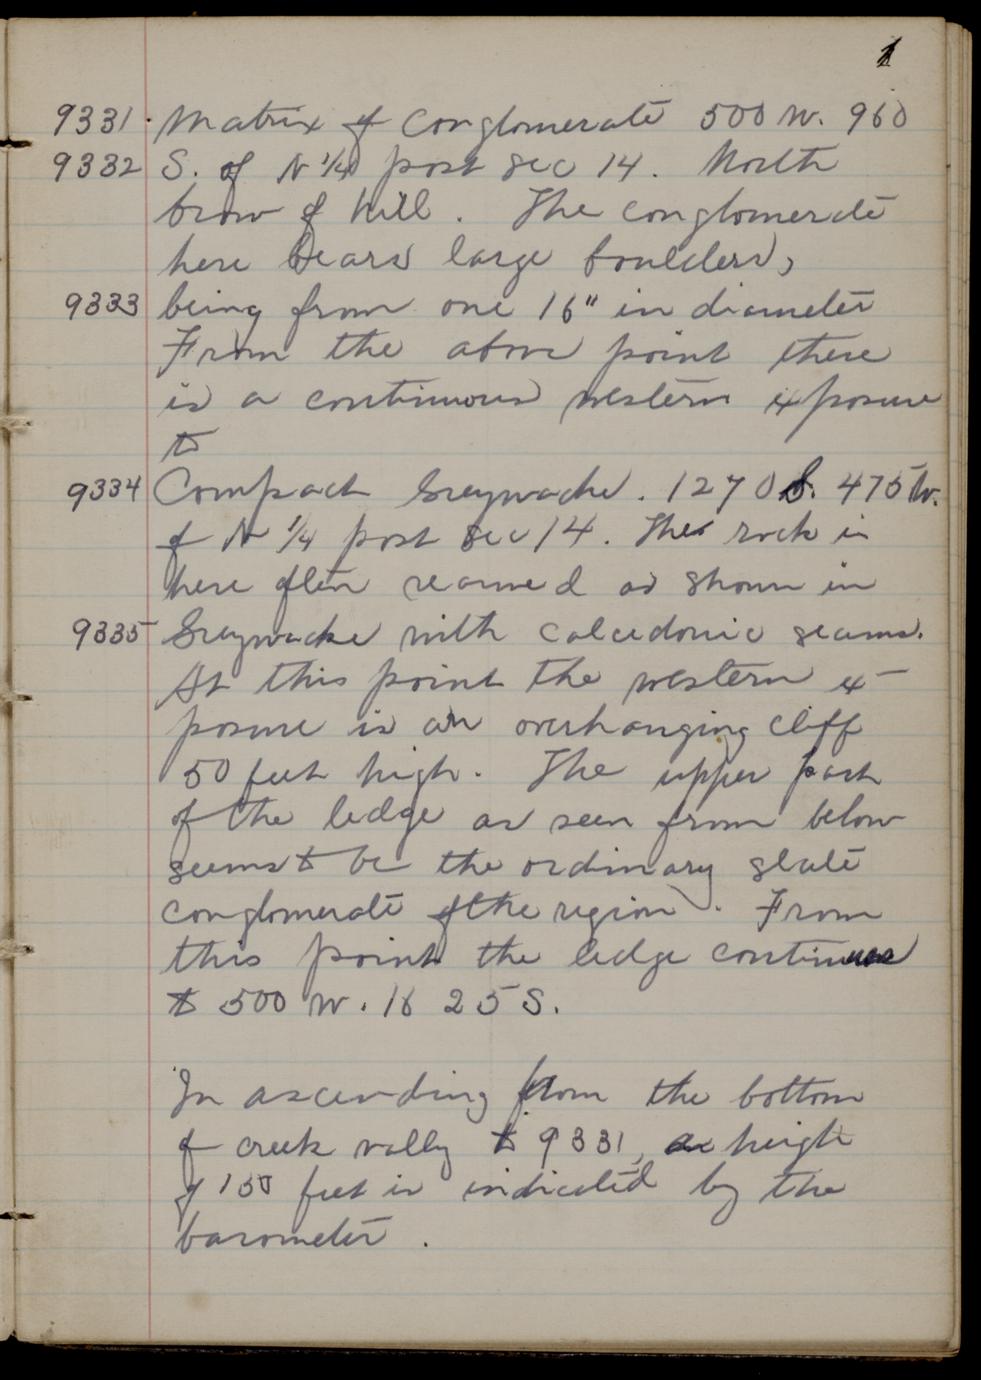 1
9331 Matrix of conglomerate 500 W. 960
9332 S. of N 1/4 post sec 14. North
brow of hill. The conglomerate
here bears large boulders,
9333 being from one 16" in diameter
From the above point there
is a continuous western exposure
to
9334 Compact Greywacke. 1270 S. 475 W.
of N 1/4 post Sec 14. The rock is
here often seamed as shown in
9335 Greywacke with calcedonic seams.
At this point the western ex-
posure is an overhanging cliff
50 feet high. The upper part
of the ledge as seen from below
seems to be the ordinary slate
conglomerate of the region. From
this point the ledge continues
to 500 W. 1625 S.
In ascending from the bottom
of creek vally to 9331, a height
of 150 feet is indicated by the
barometer.